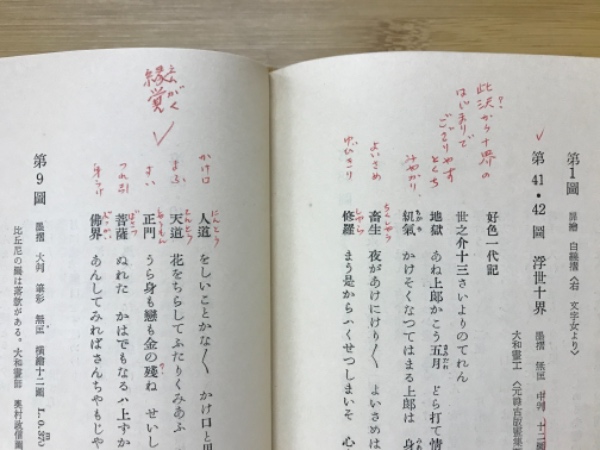 第1圖
扉繪 白繪摺〈右 文字女より〉
第41・42圖 浮世十界
墨摺 無匡 中判 十二圖
大和畫工
好色一代記
世之介十三さいよりのてれん
地獄 あね上郎かこう五月 どら打て情
飢氣 かけそくなつてはまる上郎は 身
畜生 夜があけにけり〱 よいさめは
修羅 まう是からハくせつしまいそ 心
此沢から十界の
はじまりで
ござりやす
とくち
みやかり
よいさめ
ゆびきり
人道 をしいことかな〱 かけ口と
天道 花をちらしてふたりくみあふ
正門 うら身も戀も金の殘ね せいし
菩薩 ぬれた かはでもなるハ上すか
佛界 あんしてみればさんちやもじや
かけ口
よぶ
すい
つれ引
身うけ
縁覚
えんがく
第9圖
墨摺 大判 筆彩 無匡 横繪十二圖
比丘尼の圖は落款がある。大和畫師 奧村政信圖